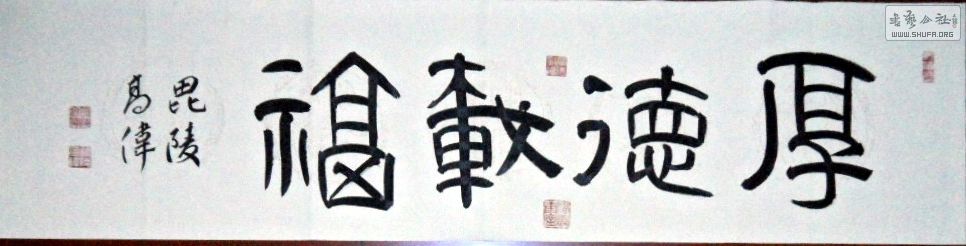 厚德載福
毘陵
高偉
書法公社
WWW.SHUFA.ORG